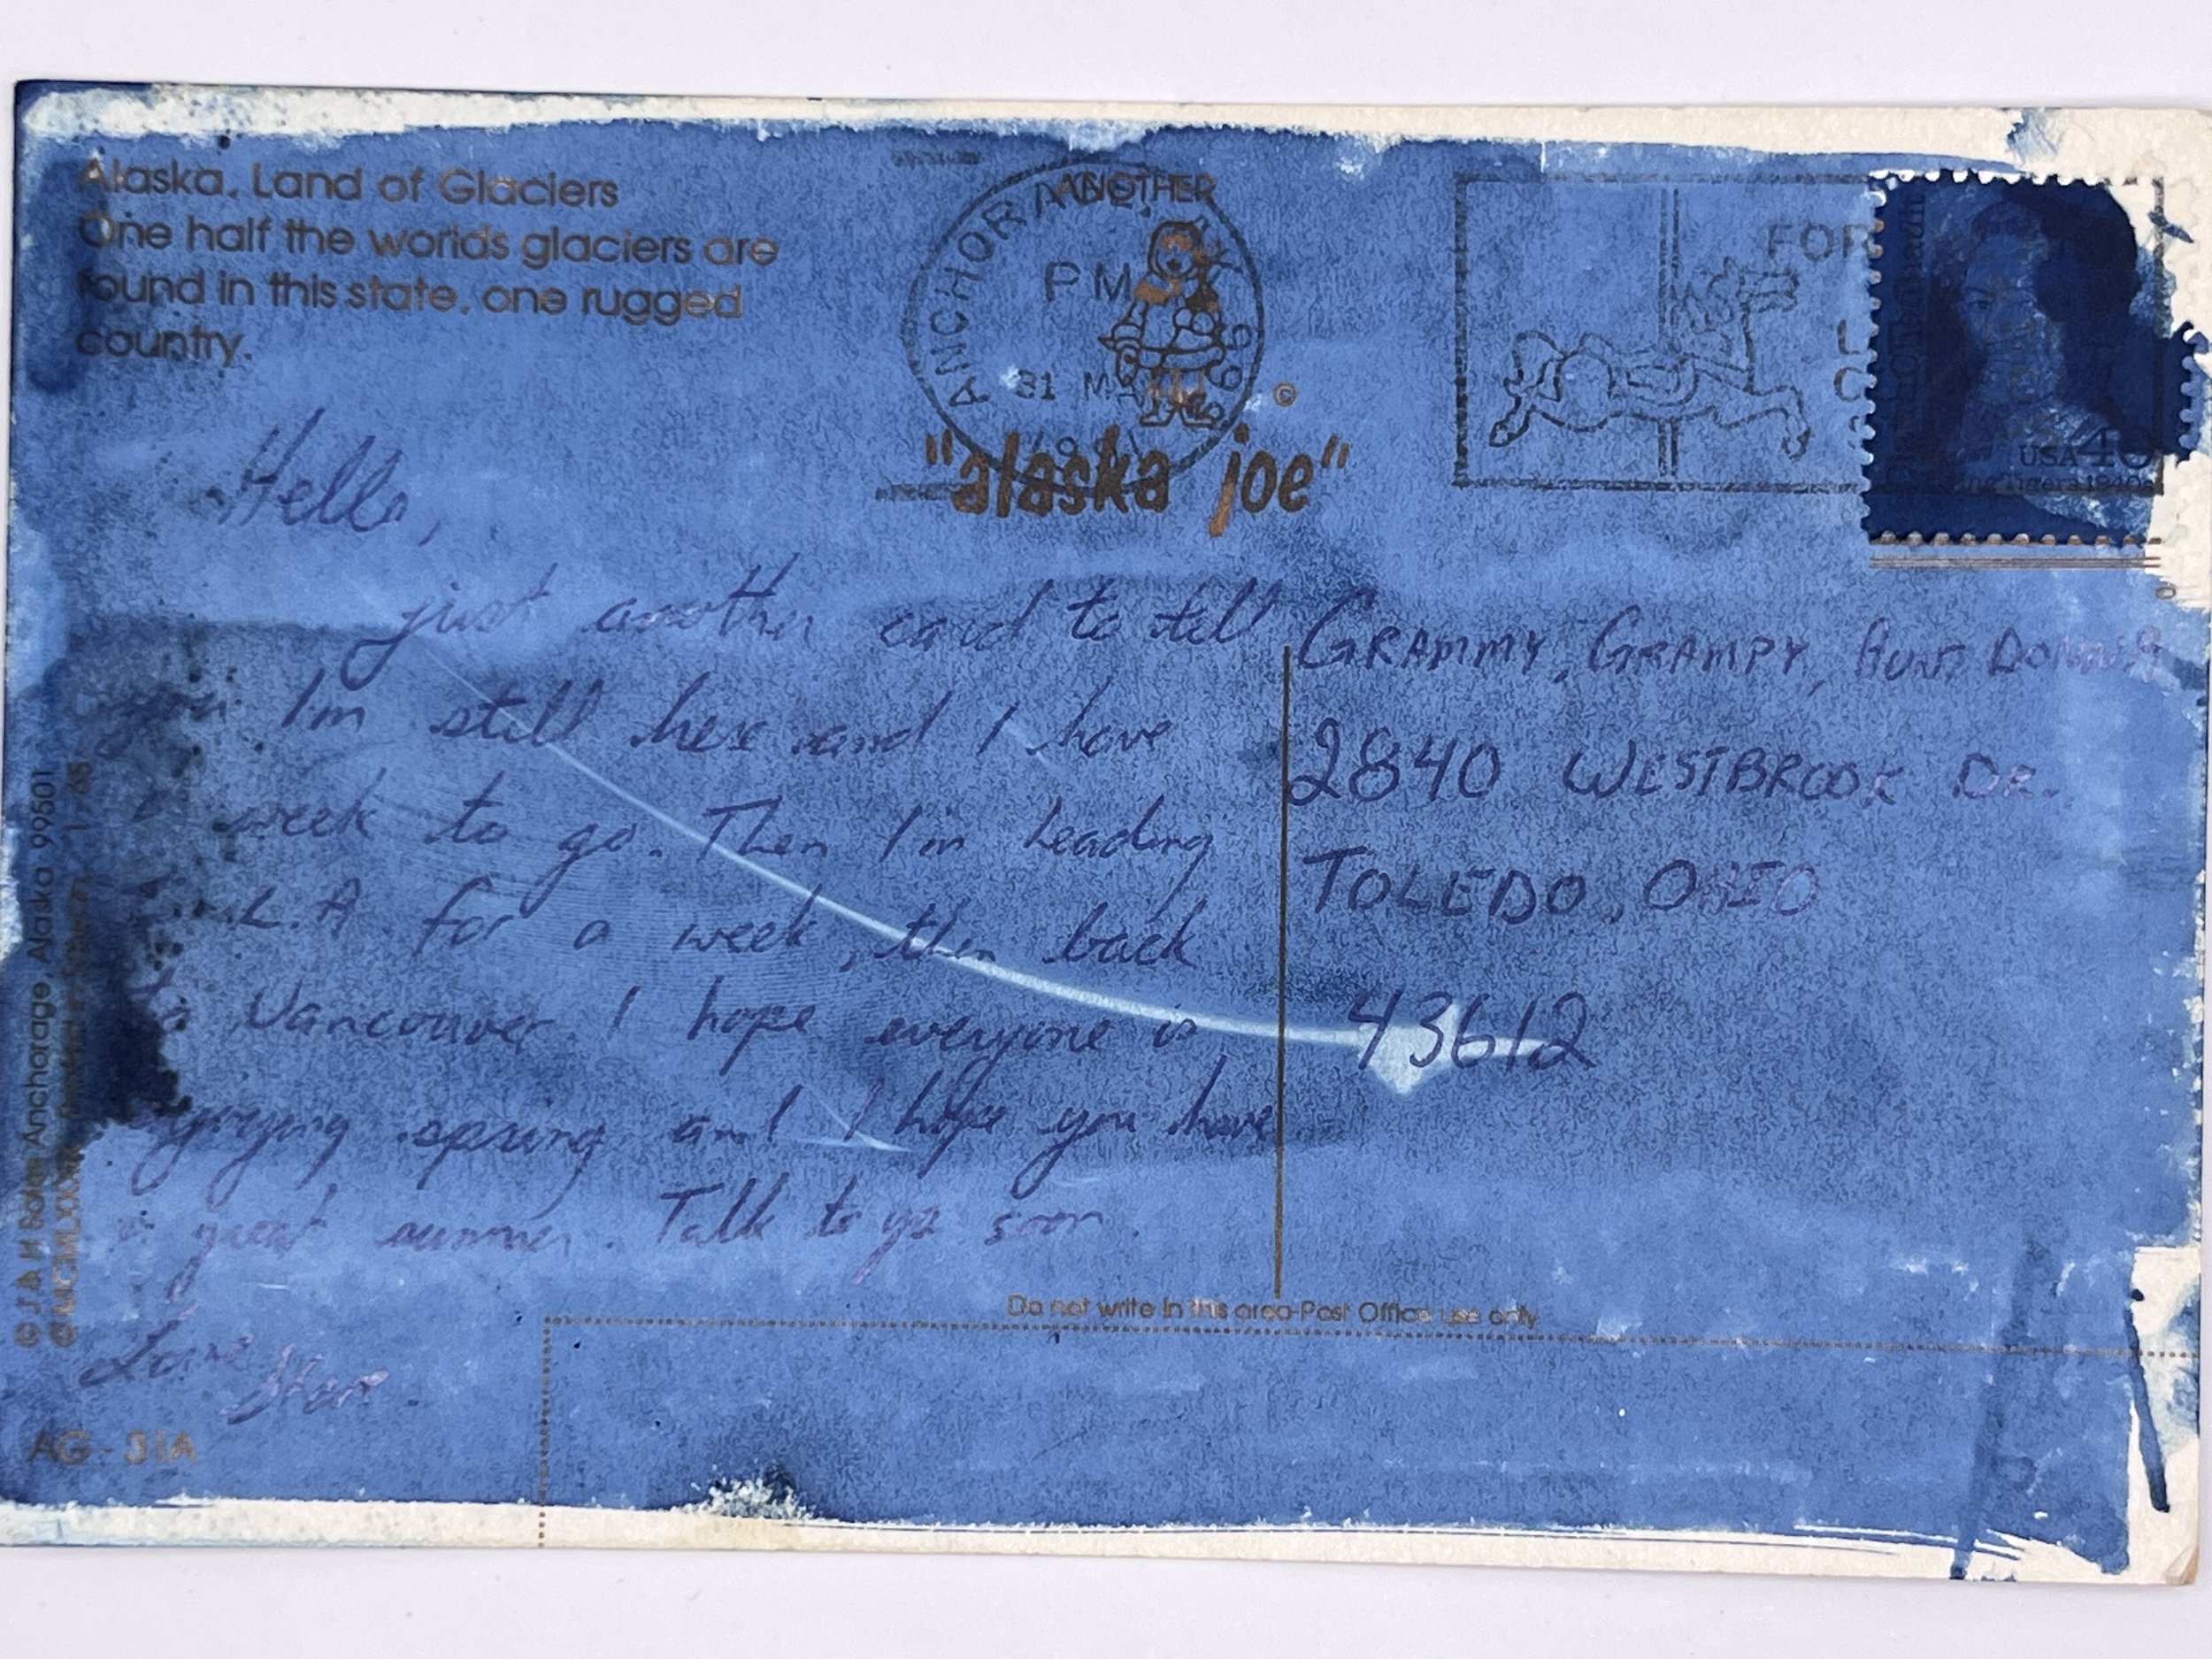 Alaska, Land of Glaciers
One half the worlds glaciers are
found in this state, one rugged
country.
ANOTHER
"alaska joe"
©
ANCHORAGE, AK
PM
31 MAY
FOR
USA
Flying Tigers 1940s
Hello,
just another card to tell
you I'm still here and I have
week to go. Then I'm heading
L.A for a week, then back
to Vancouver. I hope everyone is
enjoying spring and I hope you have
a great summer. Talk to ya soon.
Love
GRAMMY, GRAMPY, AUNT DONNA
2840 WESTBROOK DR.
TOLEDO, OHIO
43612
Do not write in this area-Post Office use only
© J & H Sales Anchorage, Alaska 99501
AG-31A